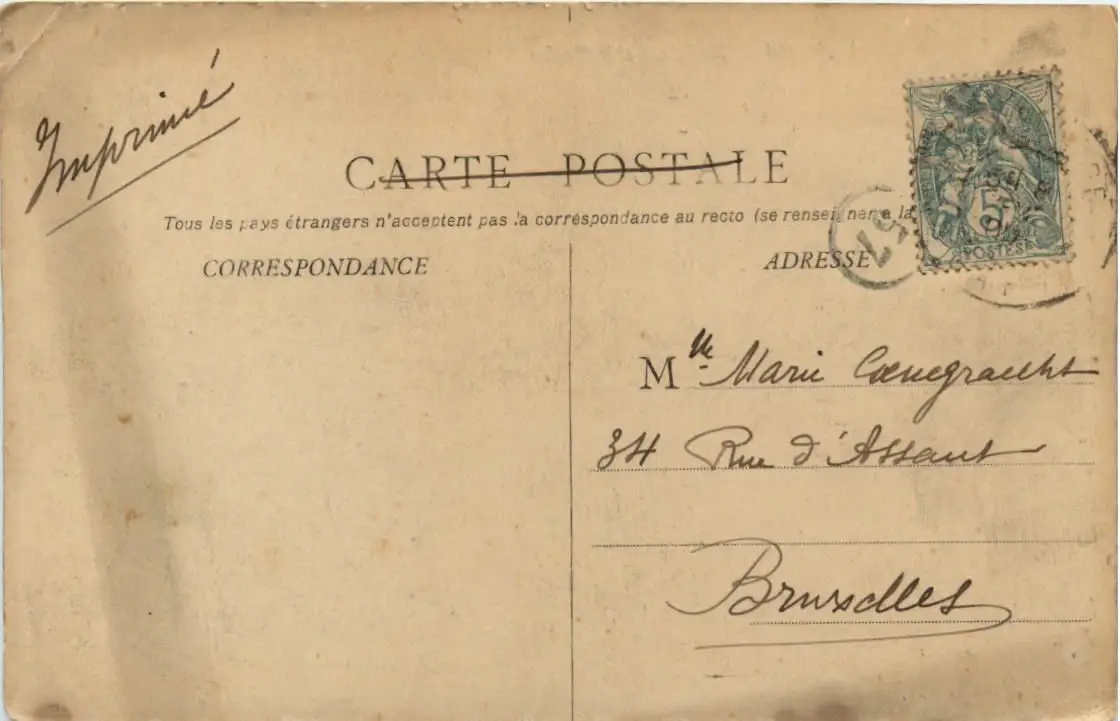 Imprimé
CARTE POSTALE
Tous les pays étrangers n'acceptent pas la correspondance au recto (se rensei ner a la
CORRESPONDANCE
ADRESSE
57
5
POSTES
Mlle Marie Coenegracht
34 Rue d'Assaut
Bruxelles